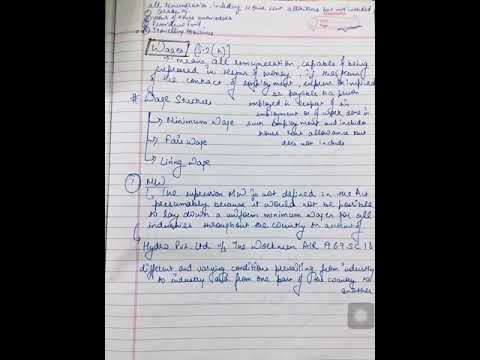 all remuneration, including House rent allowance but not included
Gratuity
Provident Fund
Travelling Allowance
Wages [S.2(h)]
It means all remuneration, capable of being
expressed in terms of money, if the terms
of the contract of employment, express or implied
be payable to a person
# Wage Structure employed in respect of his
employment or of work done in
→ Minimum Wage such employment and include
house rent allowance but
→ Fair Wage does not include
→ Living Wage
① MW
The expression MW is not defined in the Act
presumably because it would not be possible
to lay down a uniform minimum wages for all
industries throughout the country on account of
Hydro Pvt. Ltd v/s The Workmen AIR 1969 SC 18
different and varying conditions prevailing from industry
to industry and from one part of the country to
another